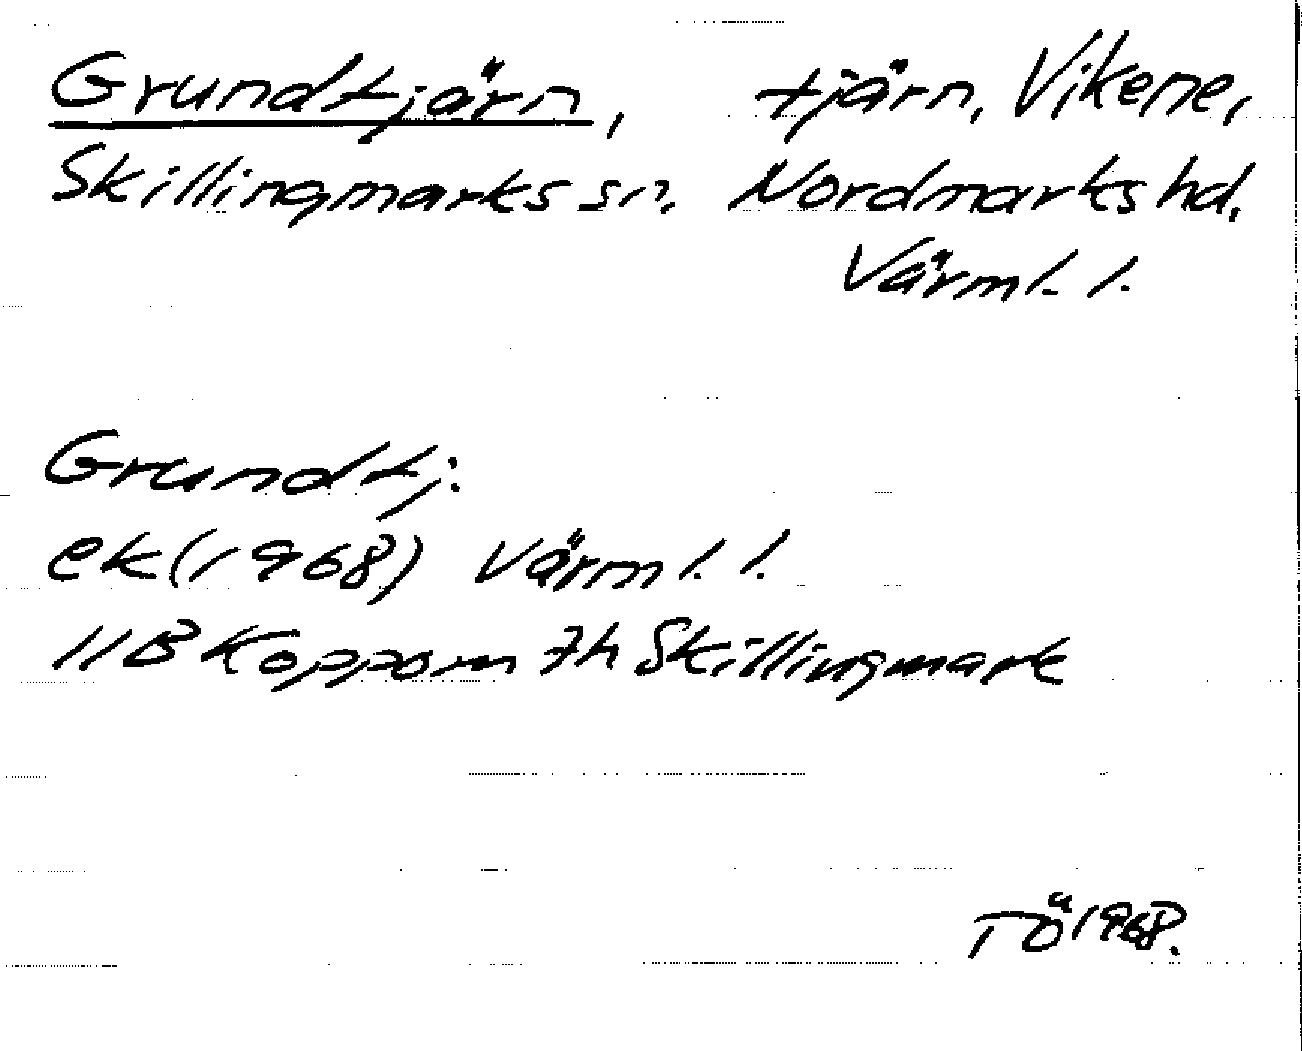 Grundtjärn, tjärn, Vikene,
Skillingmarks sn. Nordmarks hd.
Värml. l.
Grundtj:
ek(1968) Värml. l.
11B Koppom 7h Skillingmark
TÖ 1968.